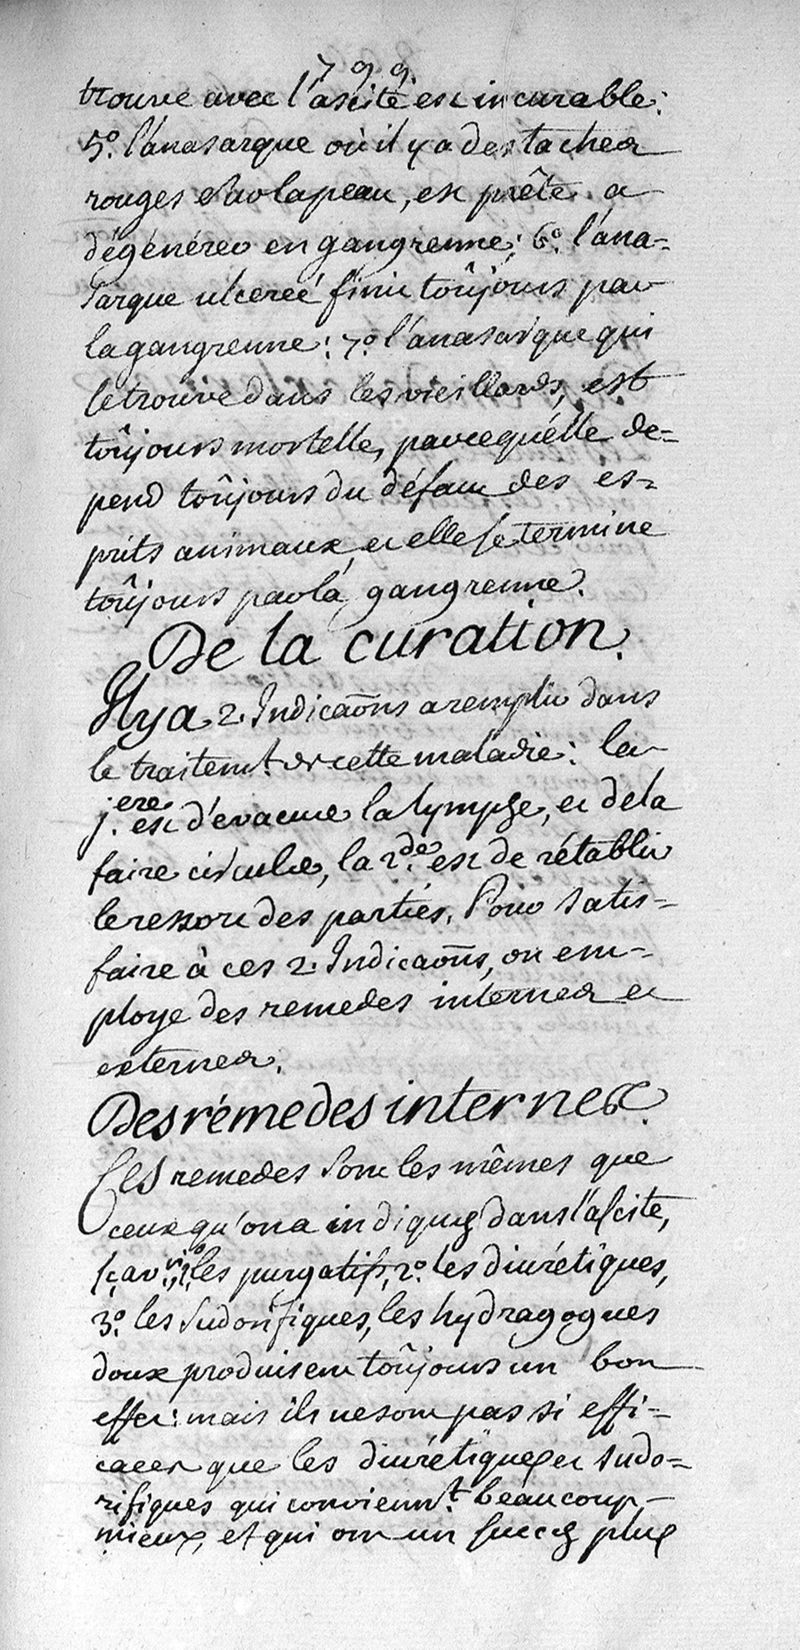 799
trouve avec l'ascite est incurable:
5.° l'anasarque où il y a des taches
rouges sur la peau, est prête a
dégénérer en gangrenne; 6.° l'ana=
sarque ulcereé finit toûjours par
la gangrenne: 7.° l'anasarque qui
se trouve dans les vieillards, est
toûjours mortelle, parcequ'elle de=
pend toûjours du défaut des es=
prits animaux, et elle se termine
toûjours par la gangrenne.
De la curation.
Il y a 2. Indicaōns a remplir dans
le traitem.t de cette maladie: la
j.ere est d'evacuer la lymphe, et de la
faire circuler, la 2.de est de rétablir
le ressort des partiés. Pour satis=
faire à ces 2. Indicaōns, on em=
ploye des remedes internes et
externes.
Des rémedes internes.
Ces remedes sont les mêmes que
ceux qu'on a indiqués dans l'ascite,
sçav.r 1.° les purgatifs, 2.° les diurétiques,
3.° les sudorifiques, les hydragogues
doux produisent toûjours un bon
effet: mais ils ne sont pas si effi=
caces que les diurétiques et sudo=
rifiques qui convienn.t beaucoup
mieux, et qui ont un succés plus